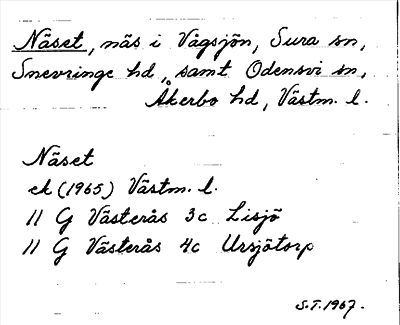 Näset, näs i Vågsjön, Sura sn,
Snevringe hd, samt Odensvi sn,
Åkerbo hd, Västm. l.
Näset
ek (1965) Västm. l.
11 G Västerås 3c Lisjö
11 G Västerås 4c Ursjötorp
S.T. 1967.